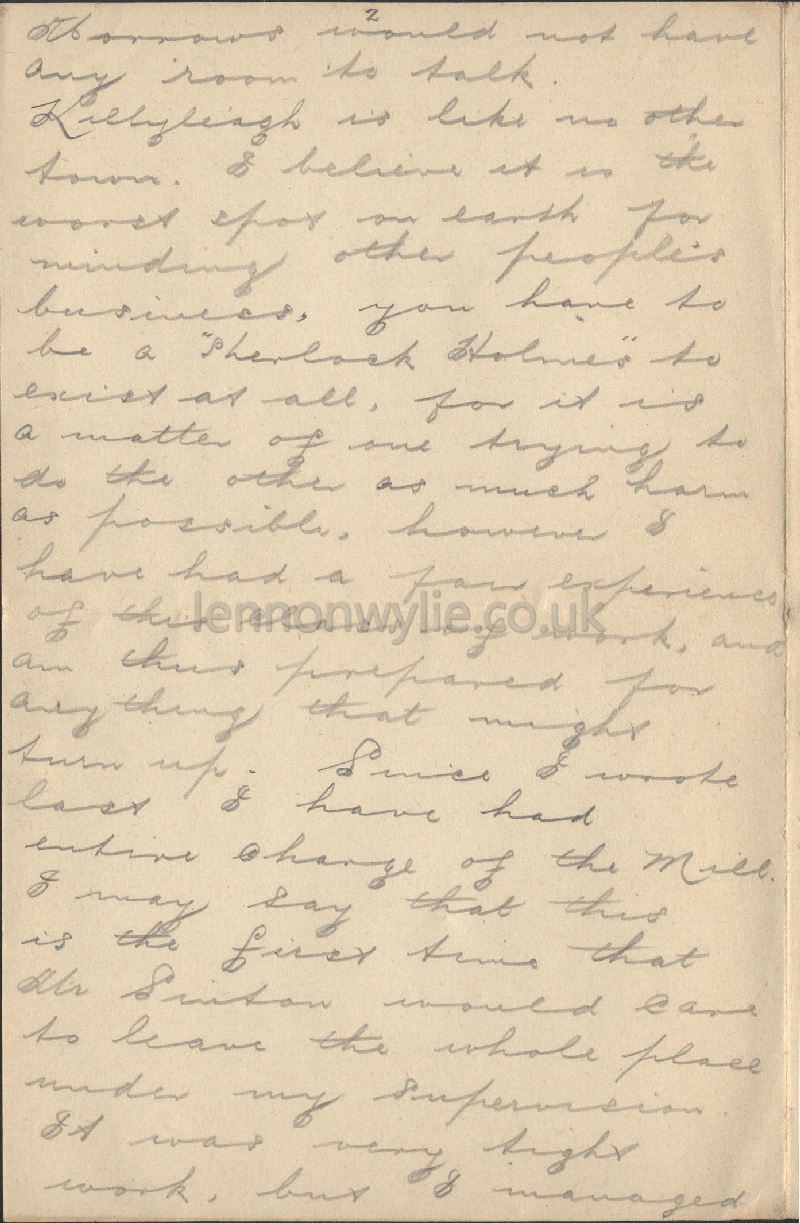 2
Morrows would not have
any room to talk.
Killyleagh is like no other
town. I believe it is the
worst spot on earth for
minding other people's
business, you have to
be a "Sherlock Holmes" to
exist at all, for it is
a matter of one trying to
do the other as much harm
as possible, however I
have had a fair experience
of this class of work, and
lennonwylie.co.uk
am thus prepared for
anything that might
turn up. Since I wrote
last I have had
entire charge of the Mill.
I may say that this
is the first time that
Mr Sinton would care
to leave the whole place
under my supervision.
It was very tight
work, but I managed